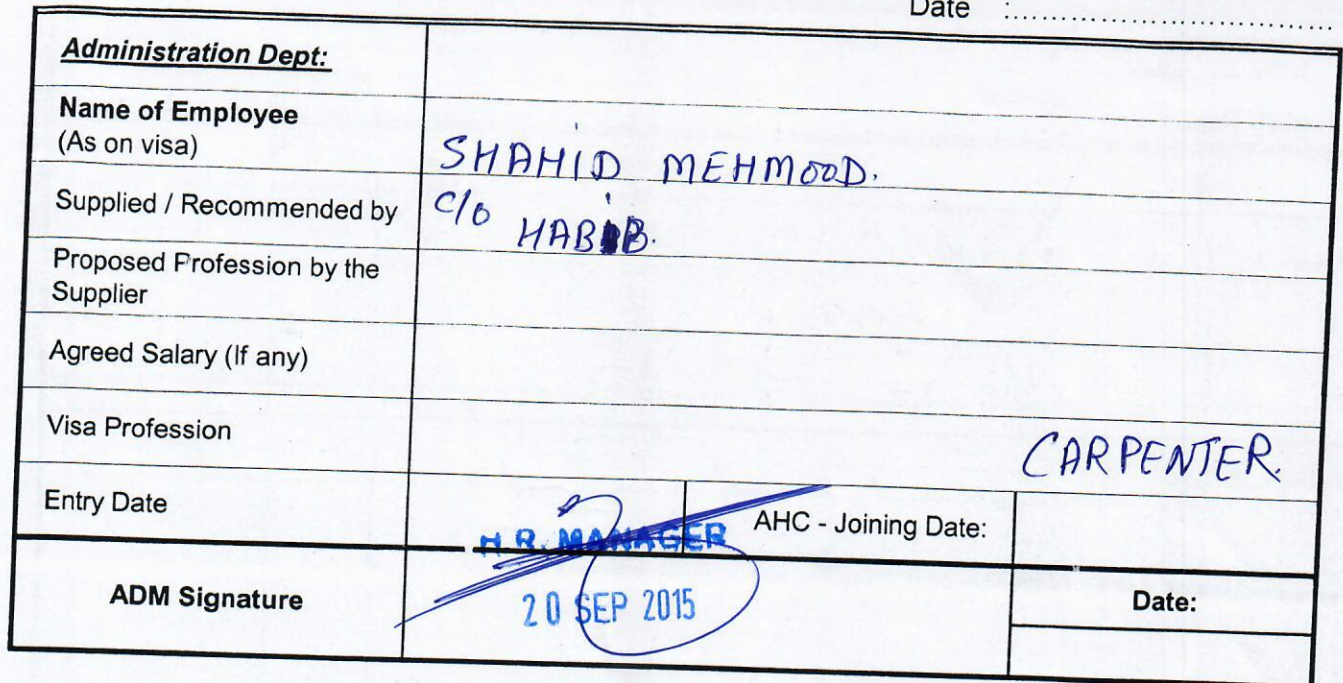 Date :..............................
Administration Dept:
Name of Employee
(As on visa)
SHAHID MEHMOOD.
Supplied / Recommended by
C/o HABIB.
Proposed Profession by the
Supplier
Agreed Salary (If any)
Visa Profession
CARPENTER.
Entry Date
AHC - Joining Date:
H.R. MANAGER
ADM Signature
20 SEP 2015
Date: